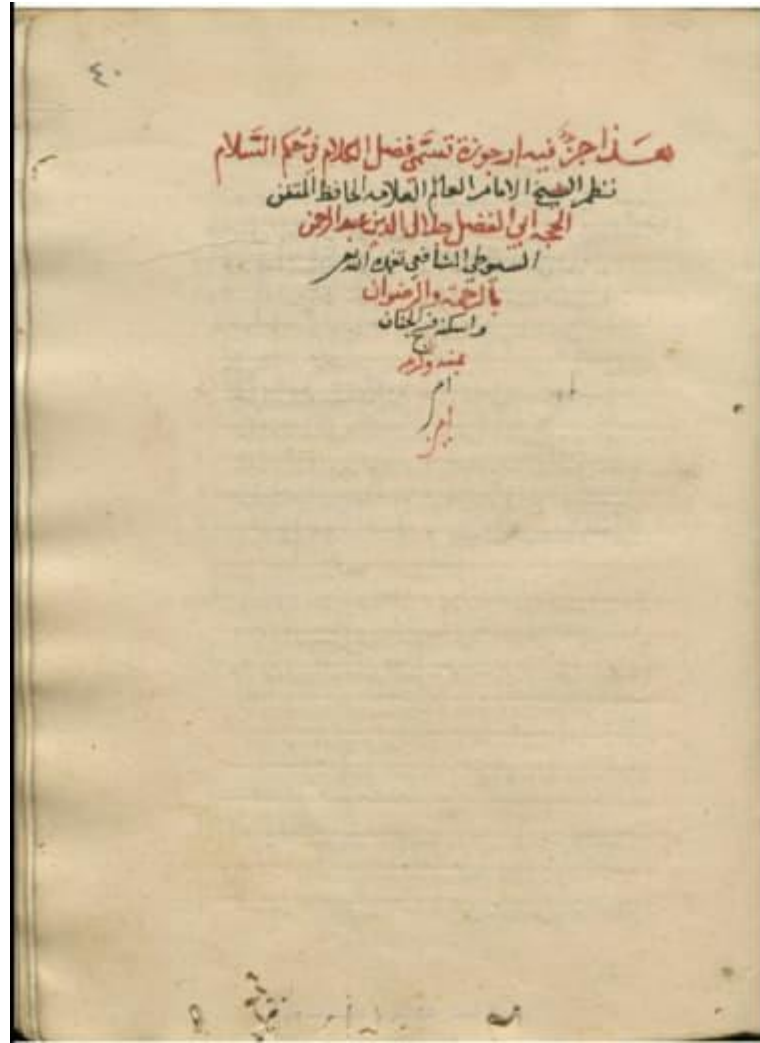 ٤٠
هذا جزؤ فيه ارجوزة تسمى فضل الكلام في حكم السلام
نظم الشيخ الامام العالم العلامه الحافظ المتقن
الحجه ابي الفضل جلال الدين عبد الرحمن
السيوطي الشافعي تغمده الله
بالرحمة والرضوان
واسكنه الجنان
بمنه وكرمه
امين